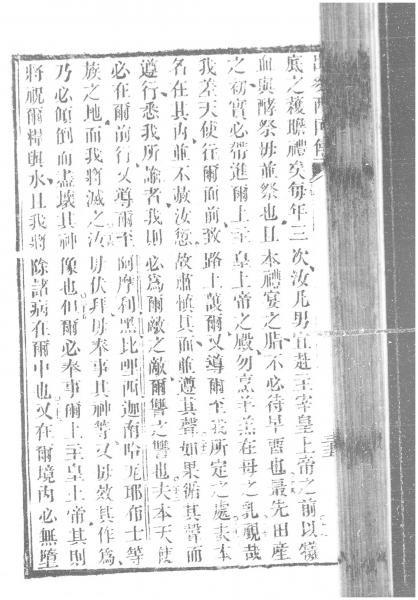 底之穫瞻禮矣每年三次汝凡男宜赴主宰皇上帝之前以犧
血與酵祭毋並祭也且本禮宴之脂不必待早晋也最先田產
之初實必帶進爾上主皇上帝之殿勿烹羔在母之乳視哉
我差天使行爾面前致路上護爾又導爾至我所定之處夫本
名在其內並不赦汝愆故肅慎其面並遵其聲如果循其聲而
遵行悉我所諭者我則必為爾敵之敵爾讐之讐也夫本天使
必在爾前行又導爾至阿摩利黑比哩西迦南哈尾耶布士等
族之地而我將滅之汝毋伏拜毋奉事其神等又毋效其作為
乃必傾倒而盡壞其神像也但爾必奉事爾上主皇上帝其則
將祝爾糧與水且我將除諸病在爾中也又在爾境內必無墮